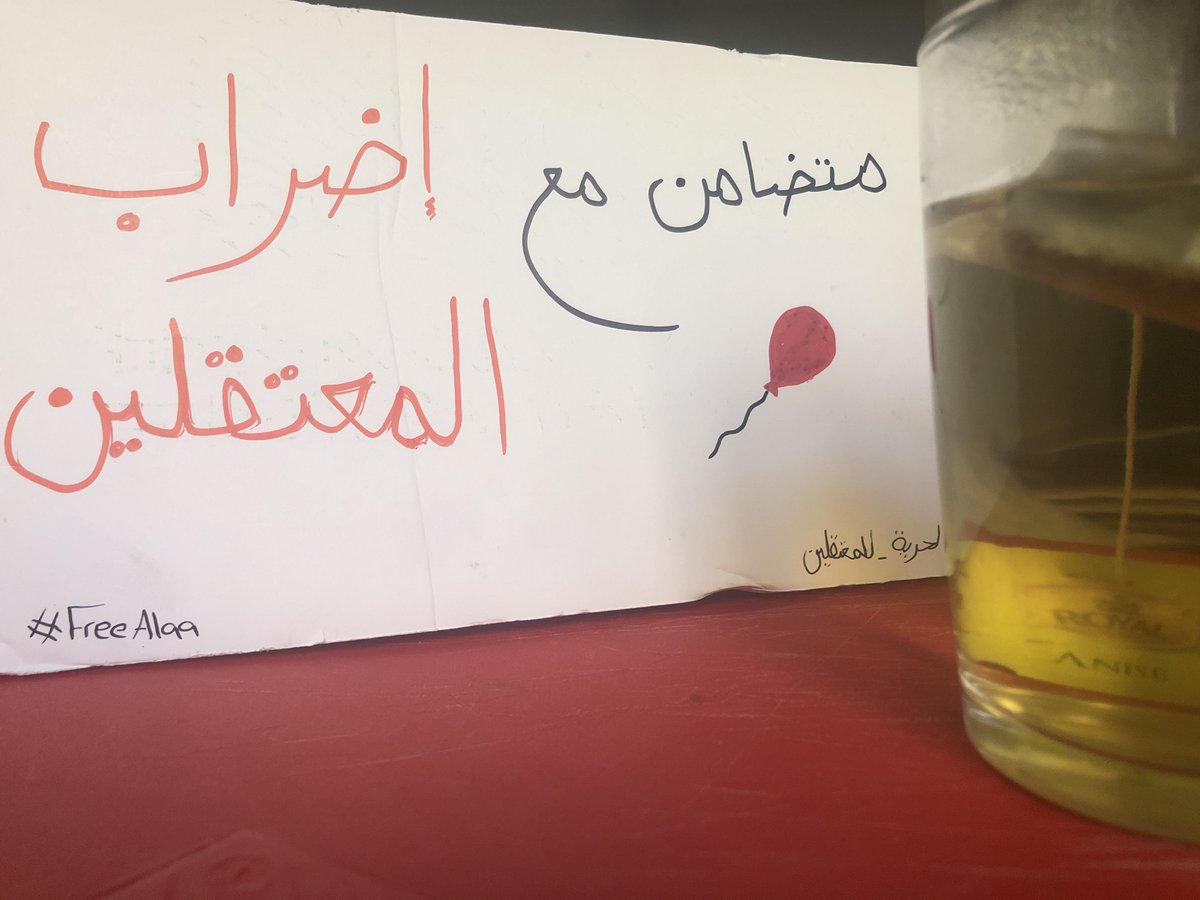 متضامن مع
إضراب
المعتقلين
الحرية_للمعتقلين
#FreeAlaa
ROYAL
ANISE